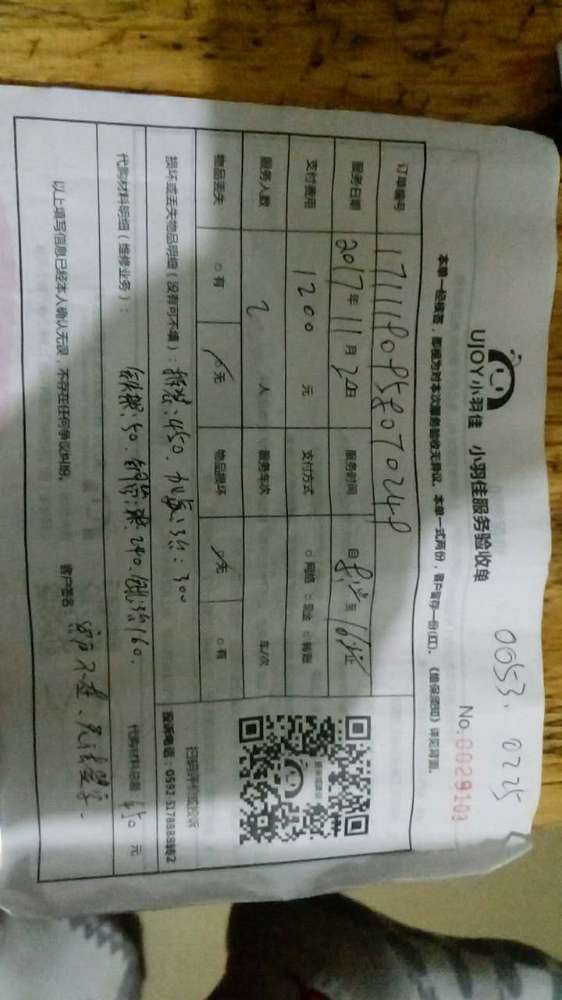 0053, 0225
UJOY小羽佳 小羽佳服务验收单
No. 0029103
本单一经核签，即视为对本次服务验收无异议，本单一式两份，客户留存一份(红)。《维保须知》详见背面。
订单编号
服务日期 2017年 11月 20日 服务时间 至
支付费用 1200 元 支付方式 □ 网络 □ 现金 □ 转账
服务人数 2 人 服务车次 车/次
物品丢失 □ 有 ✓无 物品损坏 ✓无 □ 有
损坏或丢失物品明细（没有可不填）：拆装：450. 加氟 300
扫码评价或投诉
投诉电话：0592-5178888转2
代购材料明细（维修业务）： 50. 铜管 240. 160. 代购材料总额 450 元
以上填写信息已经本人确认无误，不存在任何争议纠纷。 客户签名 客户不在、无法签字.